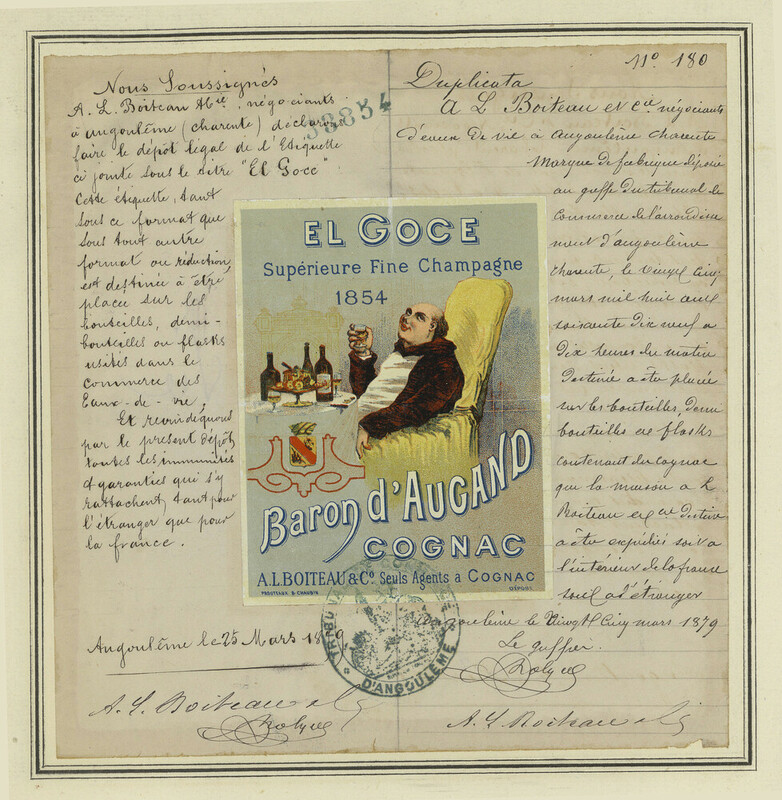 Nous Soussignés
A. L. Boiteau & Cie, négociants
à angoulême (charente) déclarons
faire le dépôt légal de l'Etiquette
ci jointe sous le titre "El Goce"
Cette étiquette, tant
sous ce format que
sous tout autre
format ou réduction,
est destinée à être
place sur les
bouteilles, demi-
bouteilles ou flasks
usités dans le
commerce des
Eaux-de-vie.
Et revindiquons
par le present dépôt,
toutes les immunités
et garanties qui s'y
rattachent, tant pour
l'étranger que pour
la france.
Angoulême le 25 Mars 1879
A. L. Boiteau & Cie
38854
No 180
Duplicata
A L Boiteau et cie négociants
d'eaux de vie à angoulême charente
Marque de fabrique déposée
au greffe du tribunal de
Commerce de l'arrondisse
ment d'angoulême
charente, le vingt cinq
mars mil huit cent
soixante dix neuf a
dix heures du matin
Destinée a être placée
sur les bouteilles, demi
bouteilles et flasks
contenant du cognac
que la maison A L
Boiteau et cie destine
a être expédié soit a
l'intérieur de la france
soit a l'étranger
angoulême le Vingt Cinq mars 1879
Le greffier
A. L. Boiteau & Cie
EL GOCE
Supérieure Fine Champagne
1854
Baron d'AUGAND
COGNAC
A.L.BOITEAU & Co. Seuls Agents a COGNAC
DÉPOSÉ.
TRIBUNAL DE COMMERCE
D'ANGOULEME